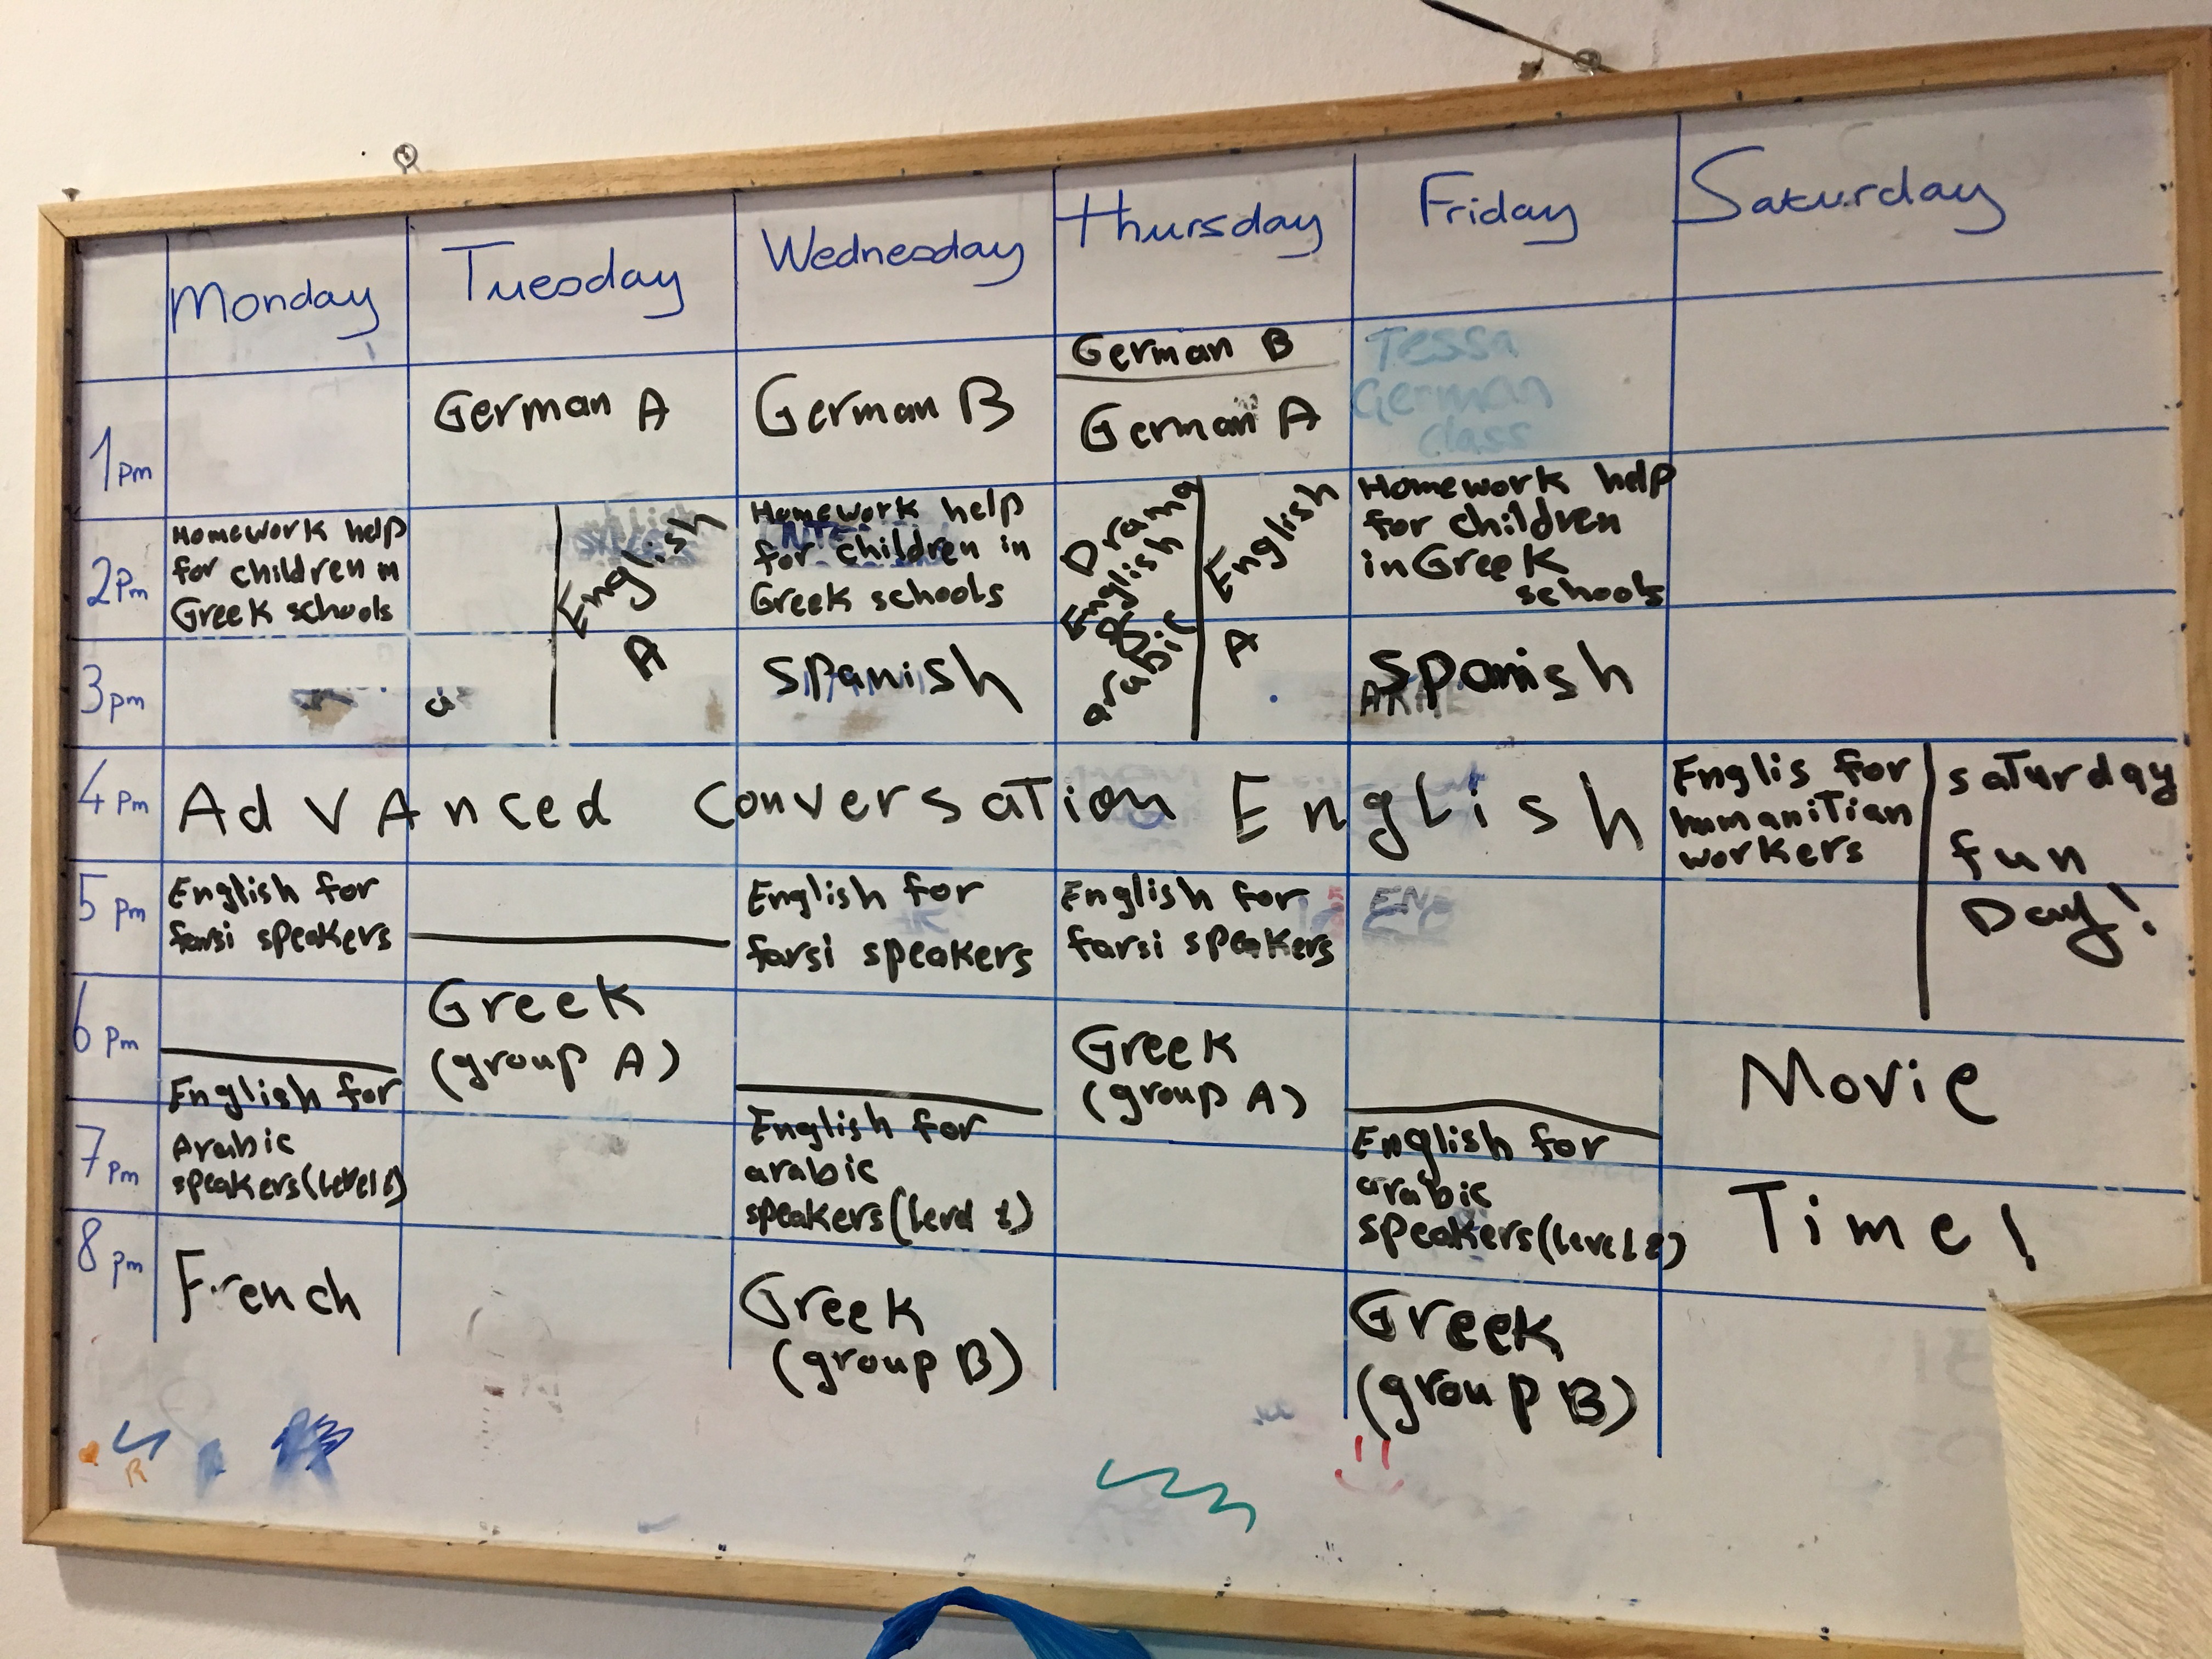 Monday Tuesday Wednesday Thursday Friday Saturday
1pm
German A
German B
German B
German A
Tessa
German
class
2pm
Homework help
for children in
Greek schools
English
A
Homework help
for children in
Greek schools
Drama
English
&
arabic
English
A
Homework help
for children
in Greek
schools
3pm
Spanish
Spanish
4pm
Advanced Conversation English
Englis for
humanitian
workers
saturday
fun
Day!
5pm
English for
farsi speakers
English for
farsi speakers
English for
farsi speakers
6pm
Greek
(group A)
Greek
(group A)
Movie
Time!
7pm
English for
Arabic
speakers
English for
arabic
speakers
English for
arabic
speakers
8pm
French
Greek
(group B)
Greek
(group B)